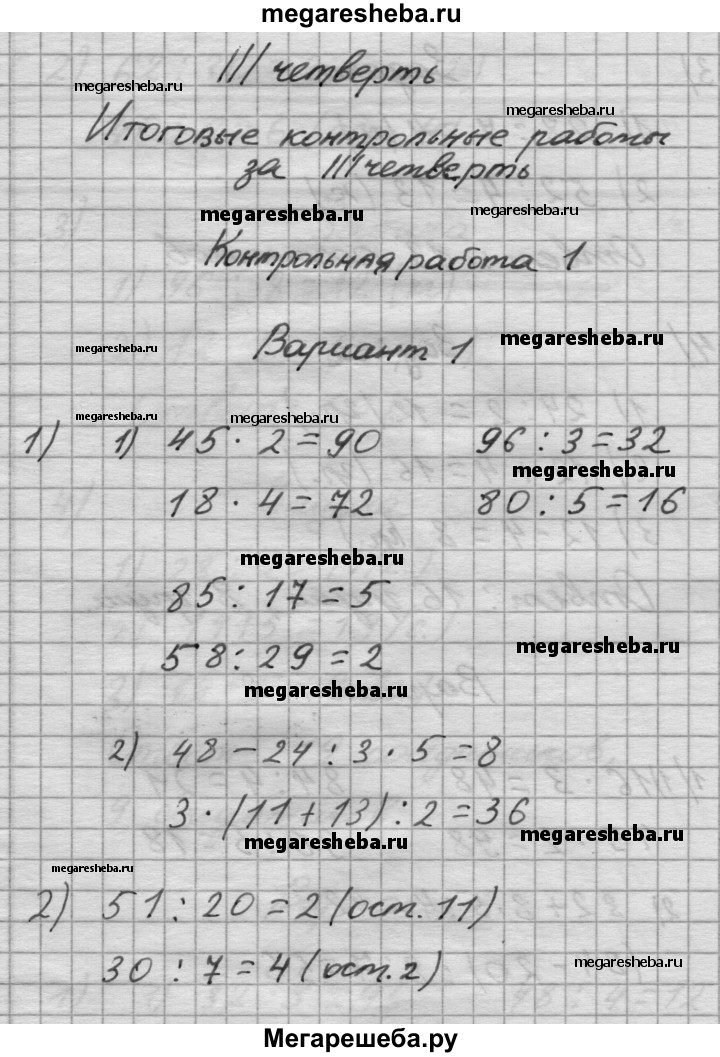 megaresheba.ru
III четверть
megaresheba.ru
megaresheba.ru
Итоговые контрольные работы
за III четверть
megaresheba.ru
megaresheba.ru
Контрольная работа 1
Вариант 1
megaresheba.ru
megaresheba.ru
megaresheba.ru
megaresheba.ru
1) 1) 45 · 2 = 90 96 : 3 = 32
megaresheba.ru
18 · 4 = 72 80 : 5 = 16
megaresheba.ru
85 : 17 = 5
58 : 29 = 2
megaresheba.ru
megaresheba.ru
2) 48 - 24 : 3 · 5 = 8
3 · (11 + 13) : 2 = 36
megaresheba.ru
megaresheba.ru
megaresheba.ru
2) 51 : 20 = 2 (ост. 11)
30 : 7 = 4 (ост. 2)
megaresheba.ru
Мегарешеба.ру